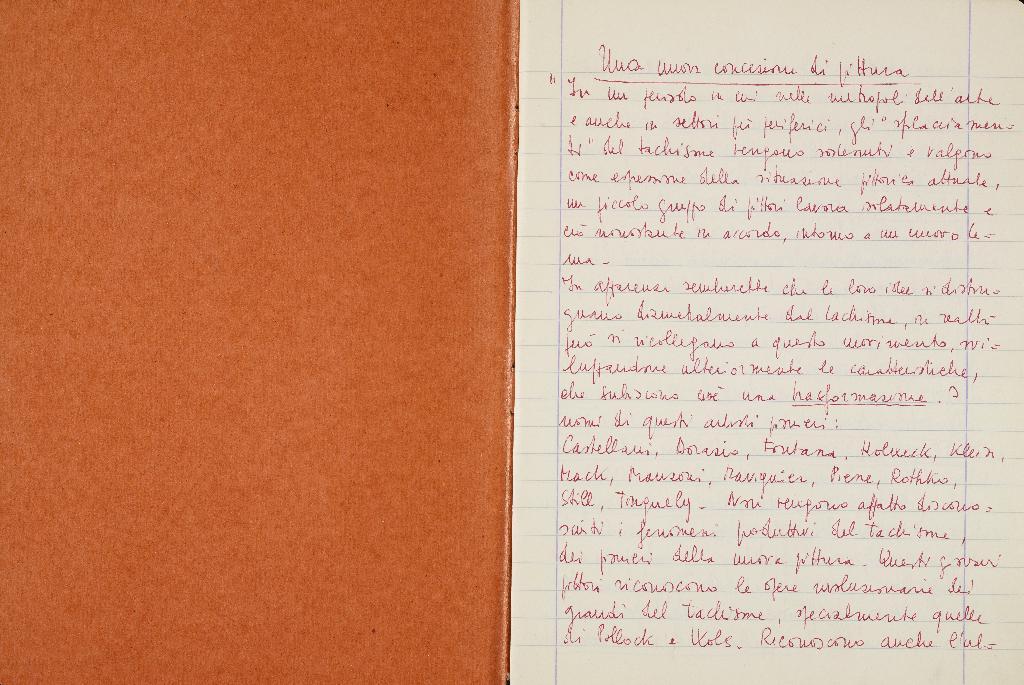 Una nuova concezione di pittura
" In un periodo in cui nelle metropoli dell'arte
e anche in settori più periferici, gli "splacciamen-
ti" del tachisme vengono sostenuti e valgono
come espressione della situazione pittorica attuale,
un piccolo gruppo di pittori lavora isolatamente e
ciò nonostante in accordo, intorno a un nuovo te-
ma -
In apparenza sembrerebbe che le loro idee si distin-
guano diametralmente dal tachisme, in realtà
però si ricollegano a questo movimento, svi-
luppandone ulteriormente le caratteristiche,
che subiscono così una trasformazione. I
nomi di questi artisti pionieri:
Castellani, Dorazio, Fontana, Holweck, Klein,
Mack, Manzoni, Mavignier, Piene, Rothko,
Still, Tinguely - Non vengono affatto discono-
sciuti i fenomeni produttivi del tachisme,
dei pionieri della nuova pittura. Questi giovani
pittori riconoscono le opere rivoluzionarie dei
grandi del tachisme, specialmente quelle
di Pollock e Wols. Riconoscono anche l'ul-